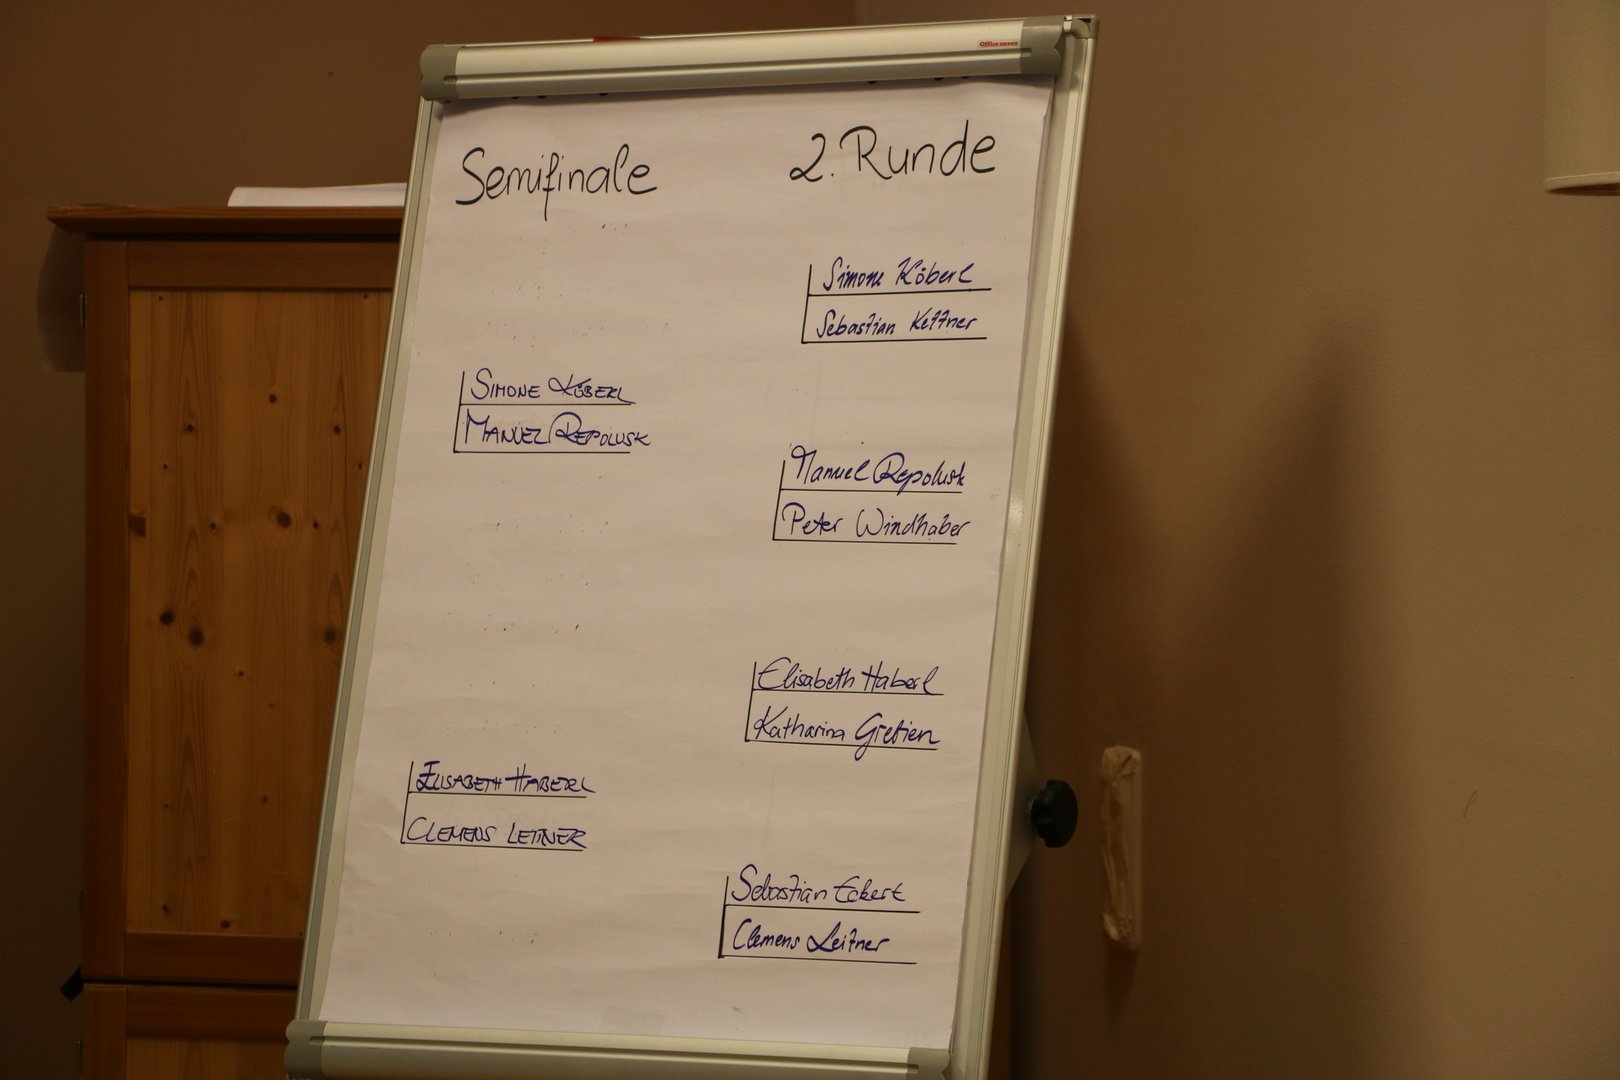 Office DEPOT
Semifinale
2. Runde
Simone Köberl
Sebastian Kettner
SIMONE KÖBERL
MANUEL REPOLUSK
Manuel Repolusk
Peter Windhaber
Elisabeth Haberl
Katharina
ELISABETH HABERL
CLEMENS LEITNER
Sebastian Eckert
Clemens Leitner